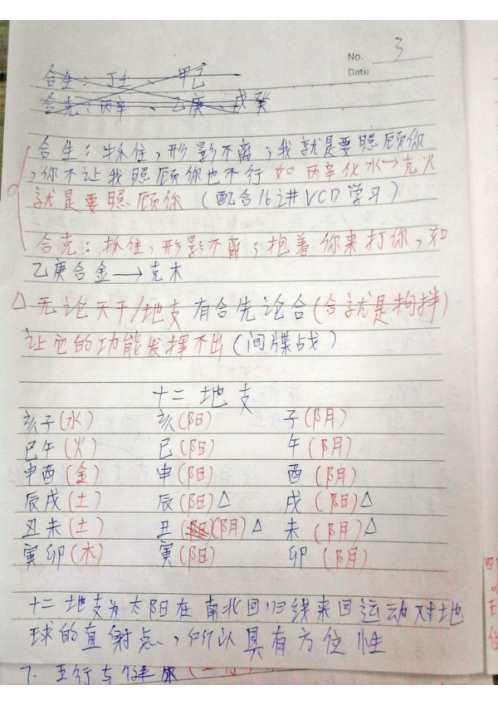 No. 3
Date
合生：丁壬、甲己
合克：丙辛、乙庚、戊癸
合生：抓住，形影不离；我就是要照顾你
，你不让我照顾你也不行 如 丙辛化水→克火
就是要照顾你（配合16讲VCD学习）
合克：抓住，形影不离；抱着你来打你，如
乙庚合金→克木
△无论天干/地支有合先论合(合就是拘拌)
让它的功能发挥不出(间牒战)
十二地支
亥子(水) 亥(阳) 子(阴)
巳午(火) 巳(阳) 午(阴)
申酉(金) 申(阳) 酉(阴)
辰戌(土) 辰(阳)△ 戌(阳)△
丑未(土) 丑(阴)△ 未(阴)△
寅卯(木) 寅(阳) 卯(阴)
十二地支为太阳在南北回归线来回运动对地
球的直射点，所以具有方位性
7. 五行与健康